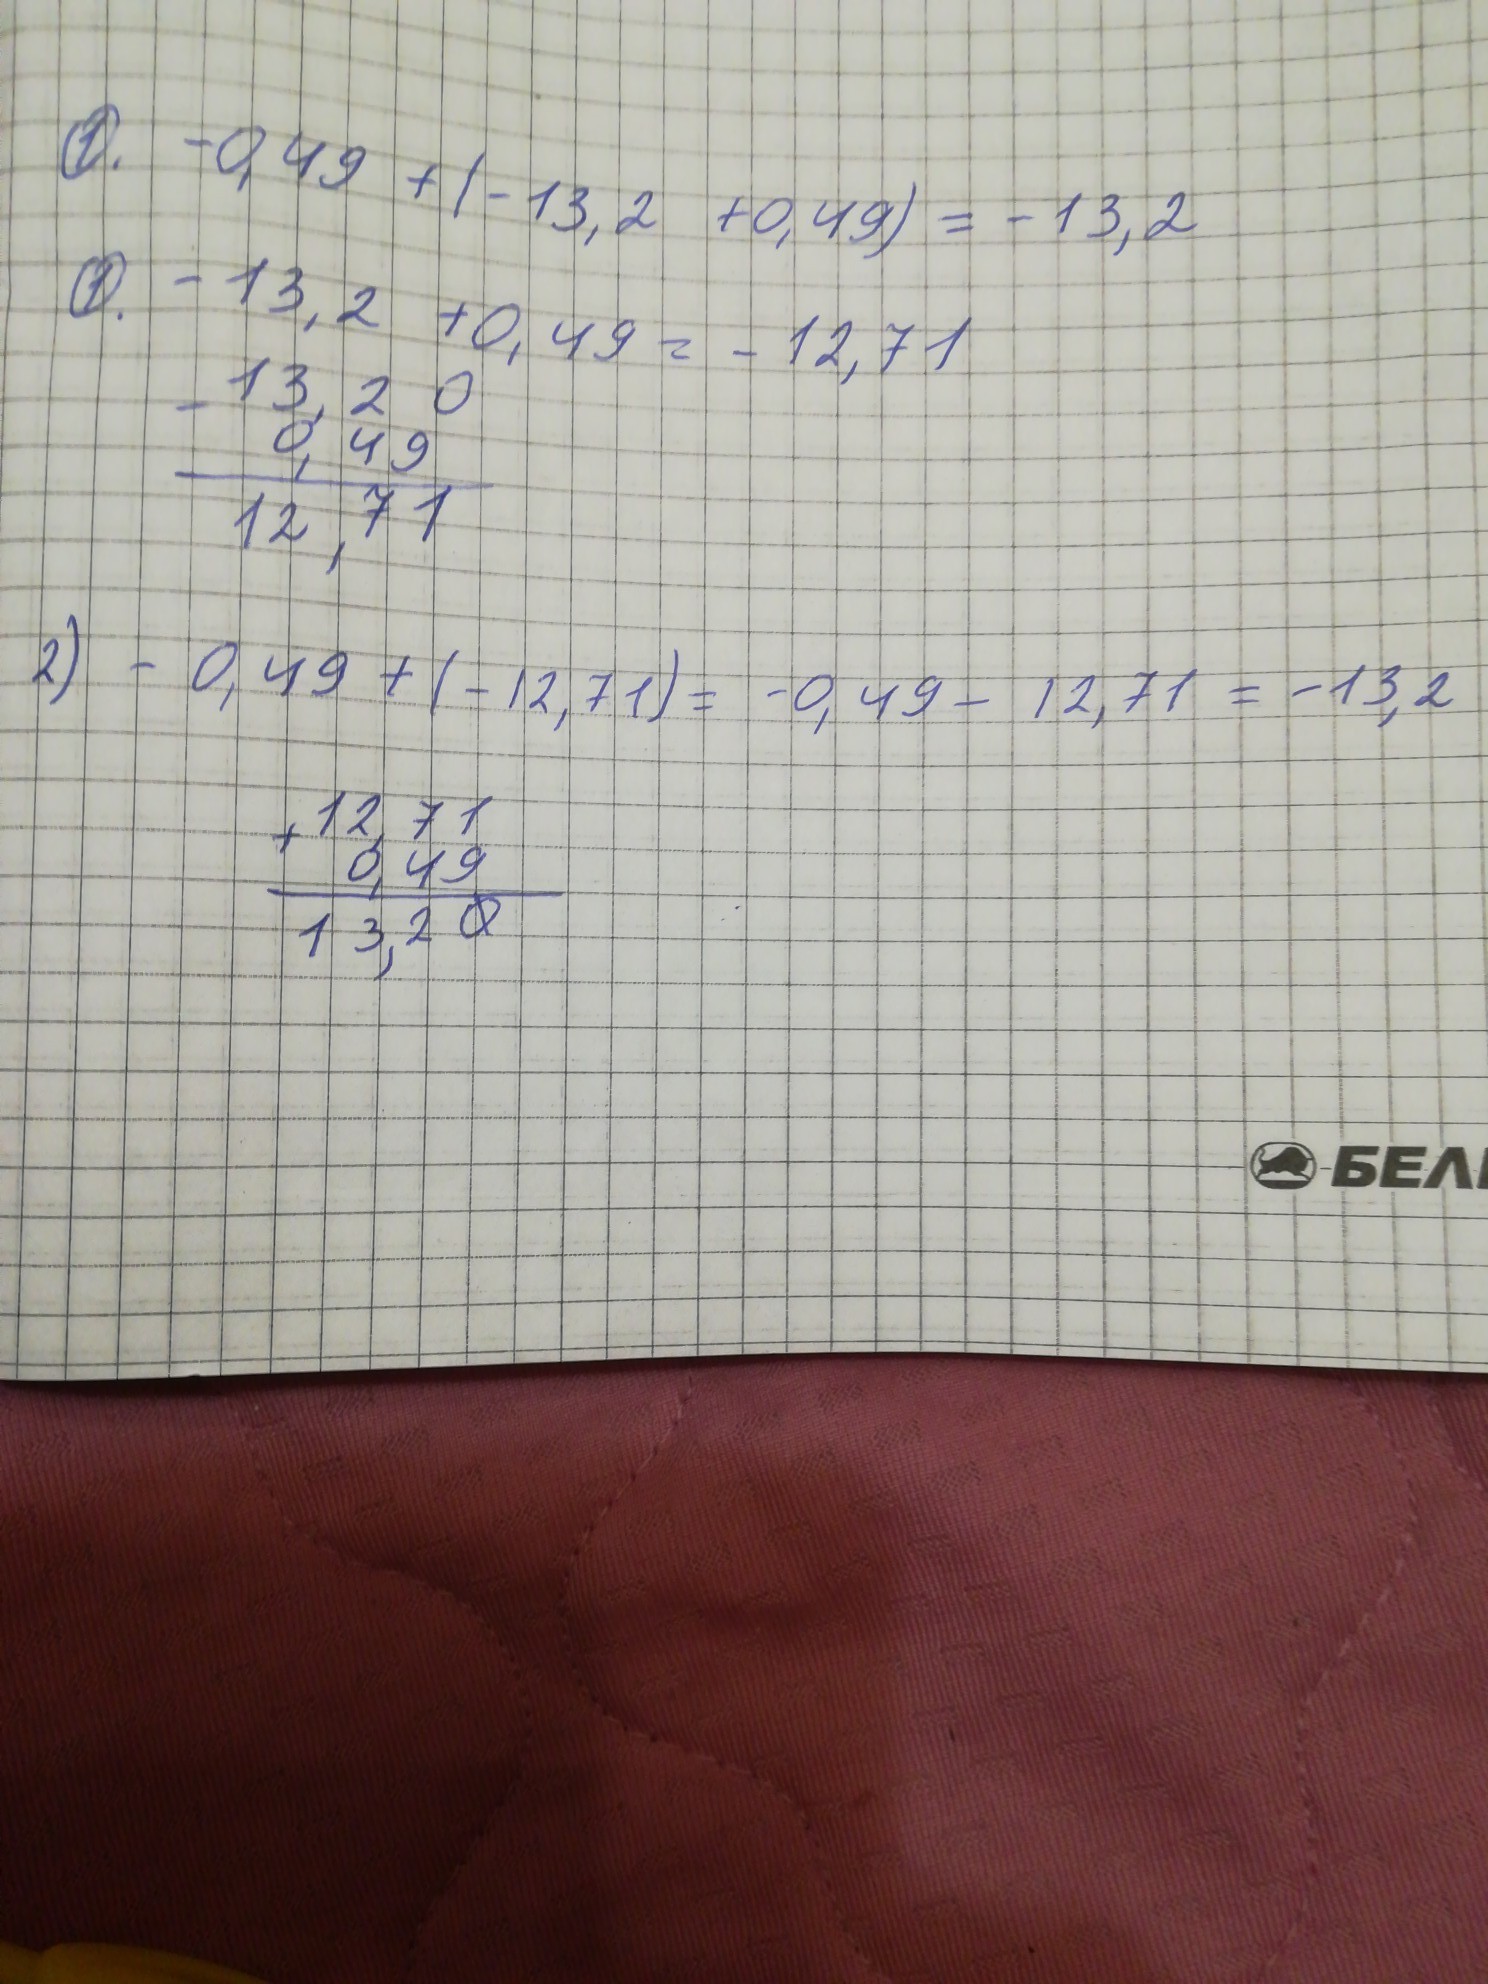 1. -0,49 + (-13,2 +0,49) = -13,2
1. -13,2 +0,49 = -12,71
- 13,20
0,49
12,71
2) - 0,49 + (-12,71) = -0,49 - 12,71 = -13,2
+ 12,71
0,49
13,20
БЕЛ